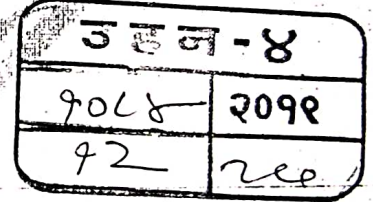 उहन-४
१०८४ २०१९
१२